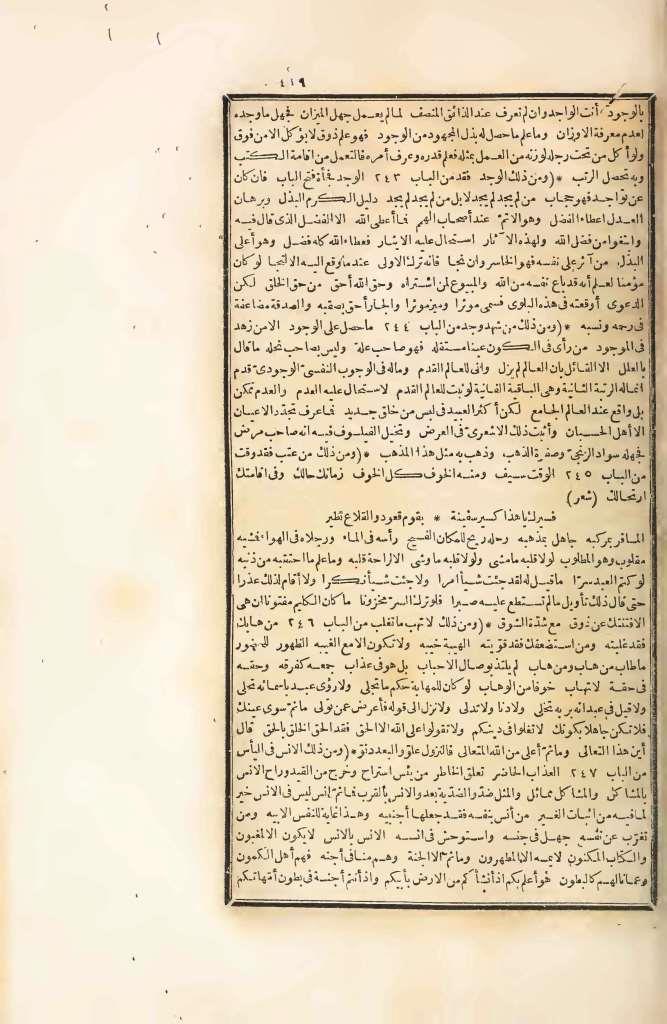 ٤٤٩
بالوجود أنت الواجد وان لم تعرف عند الذائق المنصف لما لم يعمل جهل الميزان فجهل ما وجده
لعدم معرفة الاوزان وما علم ما حصل له بذل المجهود من الوجود فهو علم ذوق لا يؤكل الا من فوق
ولو أكل من تحت رجله لوزنه من العمل بمثله فعلم قدره وعرف أمره فالتعمل من اقامة الكتب
وبه تحصل الرتب * (ومن ذلك الوجد فقد من الباب ٢٤٣ الوجد فجأة فتح الباب فان كان
عن تواجد فهو حجاب من لم يجد لم يجد لابل من لم يجد لم يجد دليل الكرم البذل وبرهان
العدل اعطاء الفضل وهو الاتم عند أصحاب الهمم فما أعطى الله الا الفضل الذي قال فيه
وابتغوا من فضل الله ولهذه الآثار استحال عليه الايثار فعطاء الله كله فضل وهو أعلى
البذل من آثر على نفسه فهو الخاسر وان نجا فانه ترك الاولى عندما وقع اليه الالتجا لو كان
مؤمنا لعلم أنه قد باع نفسه من الله والمبيوع لمن اشتراه وحق الله أحق من حق الخلق لكن
الدعوى أوقعته في هذه البلوى فسمى موثرا وميز موثرا والجار أحق بصقبه والصدقة مضاعفة
في رحمه ونسبه * (ومن ذلك من شهد وجد من الباب ٢٤٤ ما حصل على الوجود الا من زهد
في الموجود من رأى في الكون عينا مستقله فهو صاحب علة وليس بصاحب نحله ما قال
بالعلل الا القائل بان العالم لم يزل وانى للعالم القدم وماله في الوجوب النفسي الوجودي قدم
انما له الرتبة الثانية وهي الباقية الفانية لو ثبت للعالم القدم لاستحال عليه العدم والعدم ممكن
بل واقع عند العالم الجامع لكن أكثر العبيد في لبس من خلق جديد فما عرف تجدد الاعيان
الا أهل الحسبان وأثبت ذلك الاشعري في العرض وتخيل الفيلسوف فيه انه صاحب مرض
فجهله سواد الزنجي وصفرة الذهب وذهب به مثل هذا المذهب * (ومن ذلك من عتب فقد وقت
من الباب ٢٤٥ الوقت سيف ومنه الخوف كل الخوف زمانك حالك وفى اقامتك
ارتحالك (شعر)
فسيرك يا هذا كسير سفينة * بقوم قعود والقلاع تطير
المسافر بمركبه جاهل بمذهبه رحله ريح للمكان الفسيح رأسه في الماء ورجلاه في الهواء فشيه
مقلوب وهو المطلوب لولا قلبه ما مشى ولولا قلبه ما وشى الا راحة قلبه وما علم ما احتقبه من ذنبه
لو كتم العبد سرّا ما قيل له لقد جئت شيأ امرا ولا جئت شيأ نكرا ولا أقام لذلك عذرا
حتى قال ذلك تأويل ما لم تستطع عليه صبرا فلو ترك السر مخزونا ما كان الكليم مفتونا ان هي
الا فتنتك عن ذوق مع شدة الشوق * (ومن ذلك لا تهب ما تغلب من الباب ٢٤٦ من هابك
فقد غلبته ومن استضعفك فقد قويته الهيبة خيبه ولا تكون الا مع الغيبه الظهور للجمهور
ما طاب من هاب ومن هاب لم يلتذ بوصال الاحباب بل هو في عذاب جمعه كفرقه وحقه
في حقه لاتهاب خوفا من الوهاب لو كان للمهابة حكم ما تجلى ولا رؤى عبد باسمائه تحلى
ولا قيل في عبد انه بربه تخلى ولا دنا ولا تدلى ولا نزل الى قوله فأعرض عمن تولى ما تم سوى عينك
فلا تكن جاهلا بكونك لا تغلوا في دينكم ولا تقولوا على الله الا الحق فقد الحق الخلق بالحق قال
أين هذا التعالى وما تم أعلى من الله المتعالى فالنزول علو والبعد دنو * (ومن ذلك الانس في اليأس
من الباب ٢٤٧ العذاب الحاضر تعلق الخاطر من يئس استراح وخرج من القيد وراح الانس
بالمشاكل والمشاكل مماثل والمثل ضد والضدية بعد والانس بالقرب فما تم انس ليس في الانس خير
لما فيه من اثبات الغير من أنس بنفسه فقد جعلها أجنبيه وهذا غاية للنفس الابيه ومن
تغرب عن نفسه جهل في جنسه واستوحش في انسه الانس بالانس لا يكون الا لمغبون
والكتاب المكنون لا يمسه الا المطهرون وما تم الا الجنة وهم منا في أجنه فهم أهل الكمون
وعمانا لهم كالبطون هو أعلم بكم اذ أنشأكم من الارض بأبيكم واذ أنتم أجنة في بطون أمهاتكم